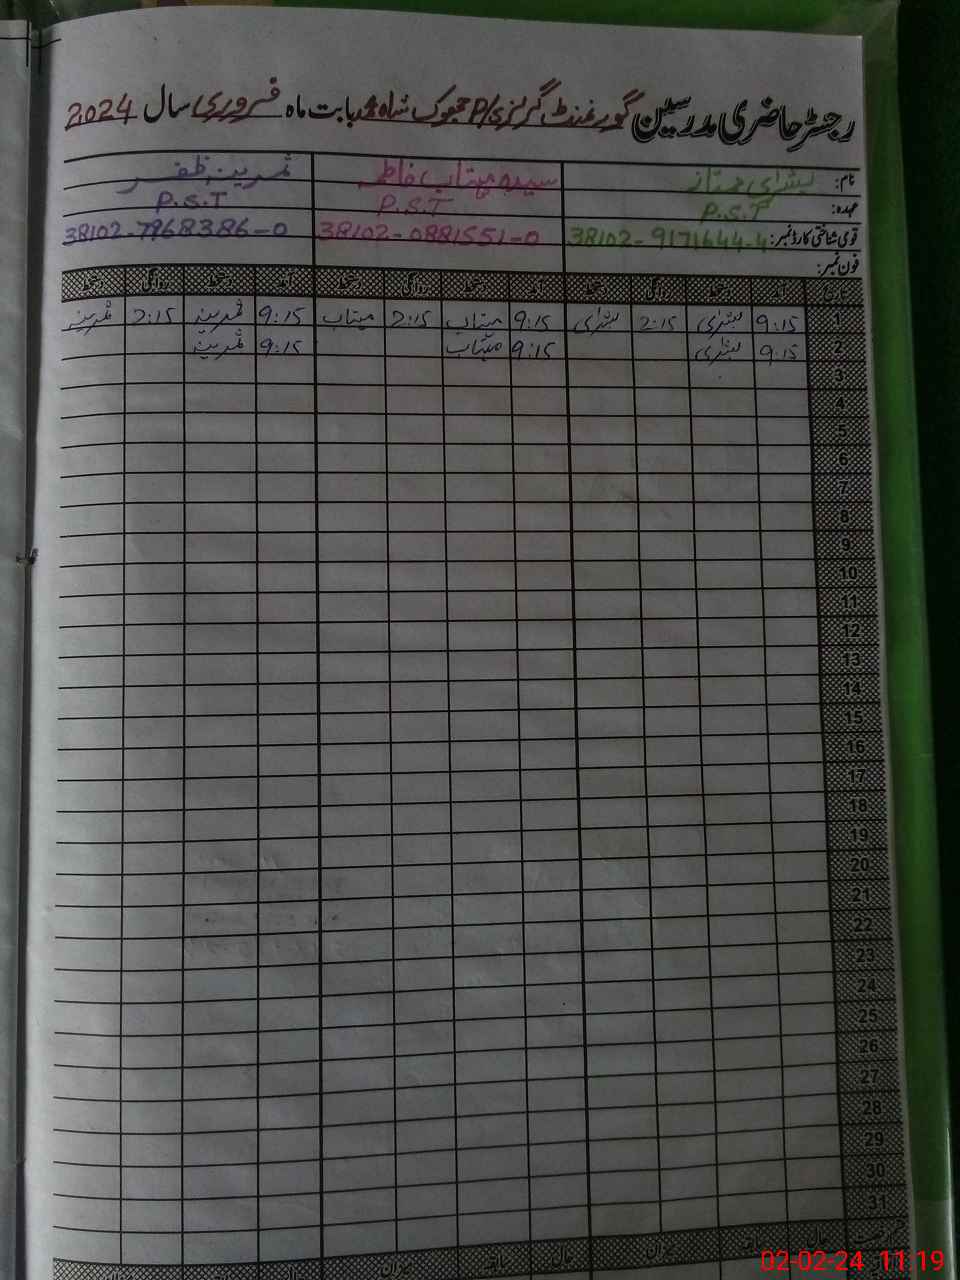 رجسٹر حاضری مدرسین گورنمنٹ گرلز P/S جھوک شاہ بابت ماہ فروری سال 2024
نام: بشرٰی ممتاز سیدہ مہتاب فاطمہ ثمرین ظفر
عہدہ: P.S.T P.S.T P.S.T
قومی شناختی کارڈ نمبر: 38102-9171644-4 38102-0881551-0 38102-7968386-0
فون نمبر:
تاریخ آمد دستخط روانگی دستخط آمد دستخط روانگی دستخط آمد دستخط روانگی دستخط
1 9:15 بشرٰی 2:15 بشرٰی 9:15 مہتاب 2:15 مہتاب 9:15 ثمرین 2:15 ثمرین
2 9:15 بشرٰی 9:15 مہتاب 9:15 ثمرین
3
4
5
6
7
8
9
10
11
12
13
14
15
16
17
18
19
20
21
22
23
24
25
26
27
28
29
30
31
حال سابق میزان حال سابق میزان حال
02-02-24 11:19